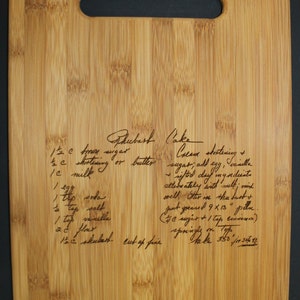 Rhubarb Cake
1½ C brown sugar
½ C shortening or butter
1 C milk
1 egg
1 tsp soda
½ tsp salt
1 tsp vanilla
2 C flour
1½ C rhubarb cut up fine
Cream shortening &
sugar, add egg, vanilla
& sifted dry ingredients
alternately with milk, and
well,
put greased 9 x 13" pan
(½ C sugar & 1 tsp cinnamon)
sprinkle on Top.
Bake 350°